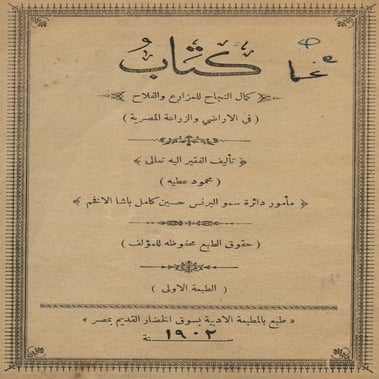 كتاب
كمال النجاح للمزارع والفلاح
( في الاراضي والزراعة المصرية )
﴿ تأليف الفقير اليه تعالى ﴾
( محمود عطيه )
﴿ مأمور دائرة سمو البرنس حسين كامل باشا الافخم ﴾
( حقوق الطبع محفوظه للمؤلف )
( الطبعة الاولى )
« طبع بالمطبعة الادبية بسوق الخضار القديم بمصر »
سنة ١٩٠٢